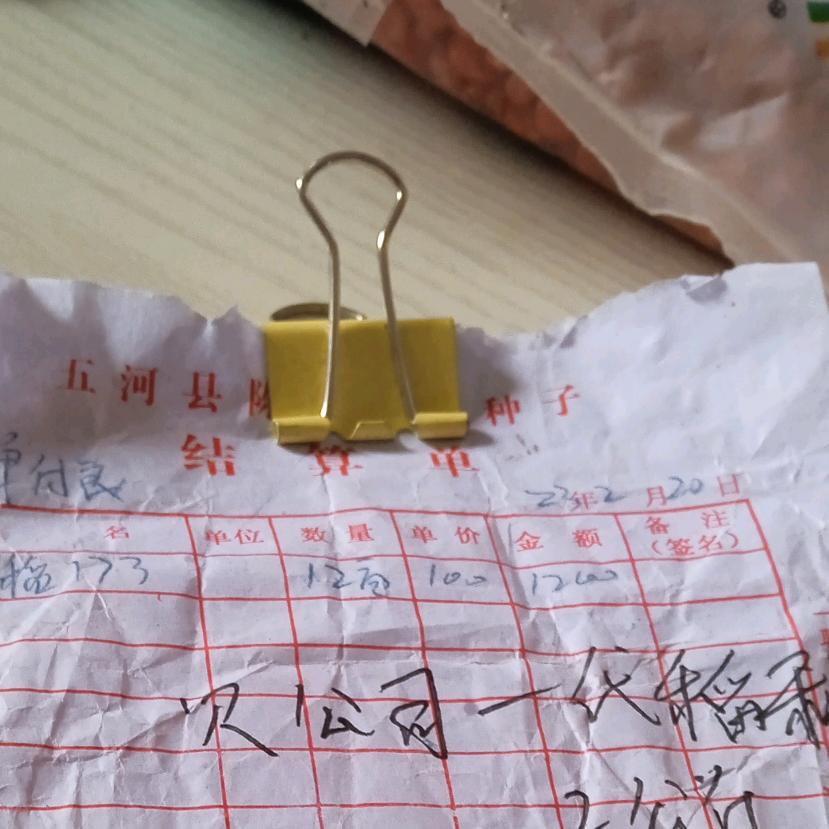 五河县陈 种子
结算单
付良 23年2月20日
名 单位 数量 单价 金额 备注(签名)
稻173 12 100 1200
欠公司一代稻